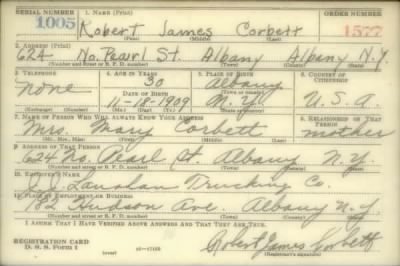 SERIAL NUMBER 1. NAME (Print) ORDER NUMBER
1005 Robert James Corbett 1577
(First) (Middle) (Last)
2. ADDRESS (Print)
624 No. Pearl St. Albany Albany N.Y.
(Number and street or R. F. D. number) (Town) (County) (State)
3. TELEPHONE 4. AGE IN YEARS 5. PLACE OF BIRTH 6. COUNTRY OF CITIZENSHIP
none 30 Albany
DATE OF BIRTH (Town or county)
11-18-1909 N.Y. U.S.A.
(Exchange) (Number) (Mo.) (Day) (Yr.) (State or country)
7. NAME OF PERSON WHO WILL ALWAYS KNOW YOUR ADDRESS 8. RELATIONSHIP OF THAT PERSON
Mrs. Mary Corbett mother
(Mr., Mrs., Miss) (First) (Middle) (Last)
9. ADDRESS OF THAT PERSON
624 No. Pearl St. Albany N.Y.
(Number and street or R. F. D. number) (Town) (County) (State)
10. EMPLOYER'S NAME
J.J. Trucking Co.
11. PLACE OF EMPLOYMENT OR BUSINESS
182 Hudson Ave. Albany N.Y.
(Number and street or R. F. D. number) (Town) (County) (State)
I AFFIRM THAT I HAVE VERIFIED ABOVE ANSWERS AND THAT THEY ARE TRUE.
REGISTRATION CARD
D. S. S. Form 1 (over) Robert James Corbett
(Registrant's signature)